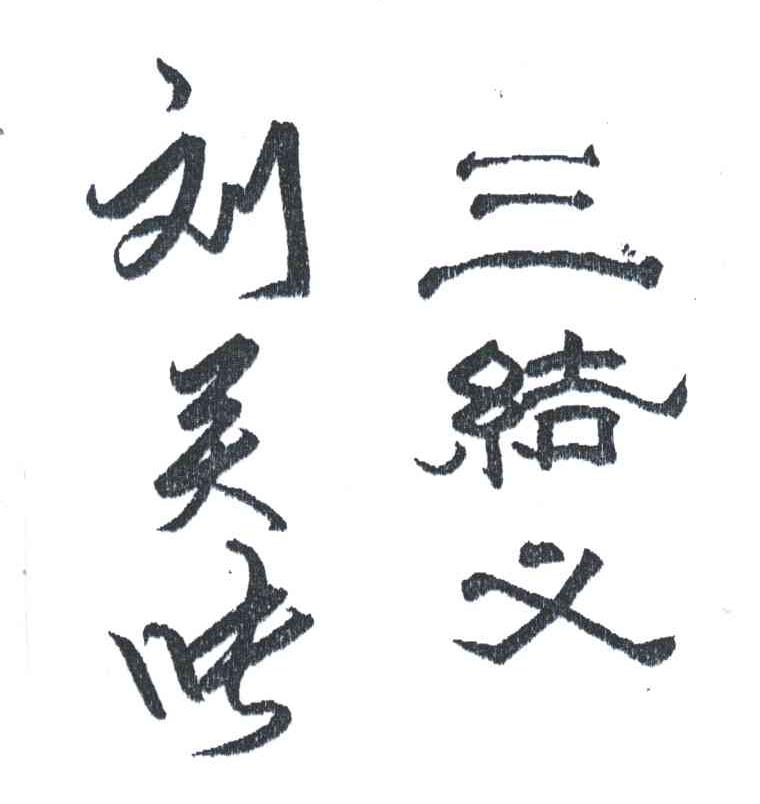 三結义
刘关张